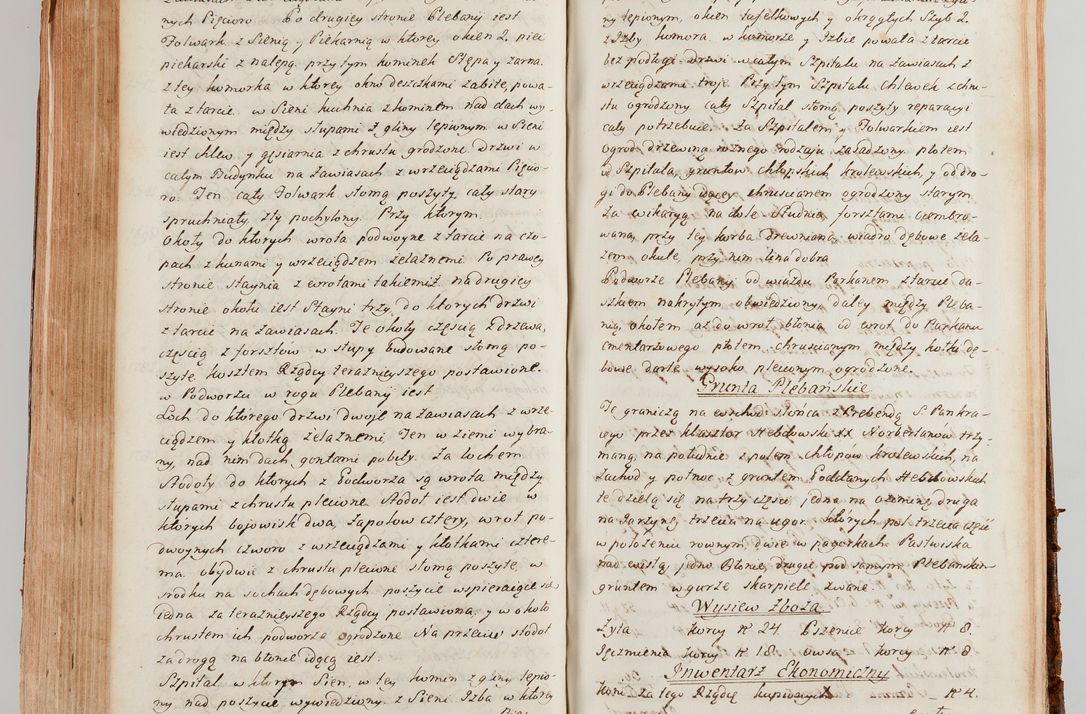 nych Pięcioro. Po drugiey stronie Plebanij iest
Folwark z Sienią y Piekarnią w ktorey okien 2. piec
piekarski z nalepą przytym kominek Stępa y zarna.
z tey komorka w ktorey okno deszkami zabite, powa-
ta z tarcic w Sieni kuchnia z kominem nad dach wy-
wiedzionym między słupami z gliny lepionym w Sieni
iest chlew y gęsiarnia z chrustu grodzone drzwi w
całym Budynku na zawiasach z wrzeciądzami Pięcio-
ro. Ten cały Folwark słomą poszyty cały stary
spruchniały zły pochylony. Przy ktorym
Okoły do ktorych wrota podwoyne z tarcic na czo-
pach z kunami y wrzeciądzem żelaznemi Po prawey
stronie Staynia z wrotami takiemiż na drugiey
stronie okołu iest Stayni trzy, do ktorych drzwi
z tarcic na zawiasach. Te okoły częscią z drzewa,
częscią z forsztów w słupy budowane słomą po-
szyte kosztem Rządcy teraznieyszego postawione.
w Podworzu w rogu Plebanij iest
Loch do ktorego drzwi dwoje na zawiasach z wrze-
ciądzem y kłotką żelaznemi Ten w ziemi wybra-
ny, nad nim dach gontami pobity. Za lochem
Stodoły do ktorych z Podworza są wrota między
słupami z chrustu plecione Stodoł iest dwie w
ktorych boiowisk dwa, Zapolow cztery, wrot po-
dwoynych czworo z wrzeciądzami y kłotkami cztere-
ma. obydwie z chrustu plecione słomą poszyte, w
srodku na sochach dębowych poszycie wspieraiące
iedna za teraznieyszego Rządcy postawiona, y w około
chrustem ich podworze ogrodzone Na przeciw stodoł
za drogą na błonie idącą iest.
Szpital, w ktorym Sien, w tey komin z gliny lepio-
ny nad poszycie wywiedziony z Sieni Izba w ktorey
ny lepionym, okien tafelkowych y okrągłych Szyb 2.
z Izby komora. w komorze y Izbie powała z tarcic
bez podłogi drzwi w całym Szpitalu na zawiasach z
wrzeciądzami troje. Przy tym Szpitalu chlewek z chru-
stu ogrodzony cały Szpital słomą poszyty reparacyi
cały potrzebuie. Za Szpitalem y Folwarkiem iest
ogrod drzewiną roznego rodzaju zasadzony płotem
od Szpitala, gruntow chłopskich krolewskich, y od dro-
gi do Plebanij idącey chruscianem ogrodzony starym.
Za wikaryą na dole Studnia forsztami cembro-
wana, przy tey korba drewniana, wiadro dębowe żela-
zem okute, przy nim lina dobra
Podworze Plebanij od wiazdu Parkanem z tarcic da-
szkiem nakrytym obwiedziony daley między Pleba-
nią okołem aż do wrot, błonia od wrot do Parkanu
cmentarzowego płotem chruscianym między kołki dę-
bowe darte wysoko plecionym ogrodzone.
Grunta Plebańskie
Te graniczą na wschod słońca z Prebendą S. Pankra-
cego przez klasztor Hebdowski XX. Norbertanów trzy-
maną, na południe z polem chłopow krolewskich, na
Zachod y połnoc z gruntem Poddanych Hebdowskich
te dzielą się na trzy częsci jedna na ozeminę druga
na Jarzynę, trzecia na ugor. ktorych pol trzecia częsć
w położeniu rownym, dwie w pagorkach. Pastwiska
nad wisłą jedno Błonie, drugie pod samym Plebanskim
gruntem w gurze skarpiele zwane.
Wysiew Zboża
Żyta korcy N 24. Pszenicy korcy N 8.
Jęczmienia korcy N 18. owsa korcy N 8.
Inwentarz Ekonomiczny
Koni za tego Rządcy kupionych N 4.